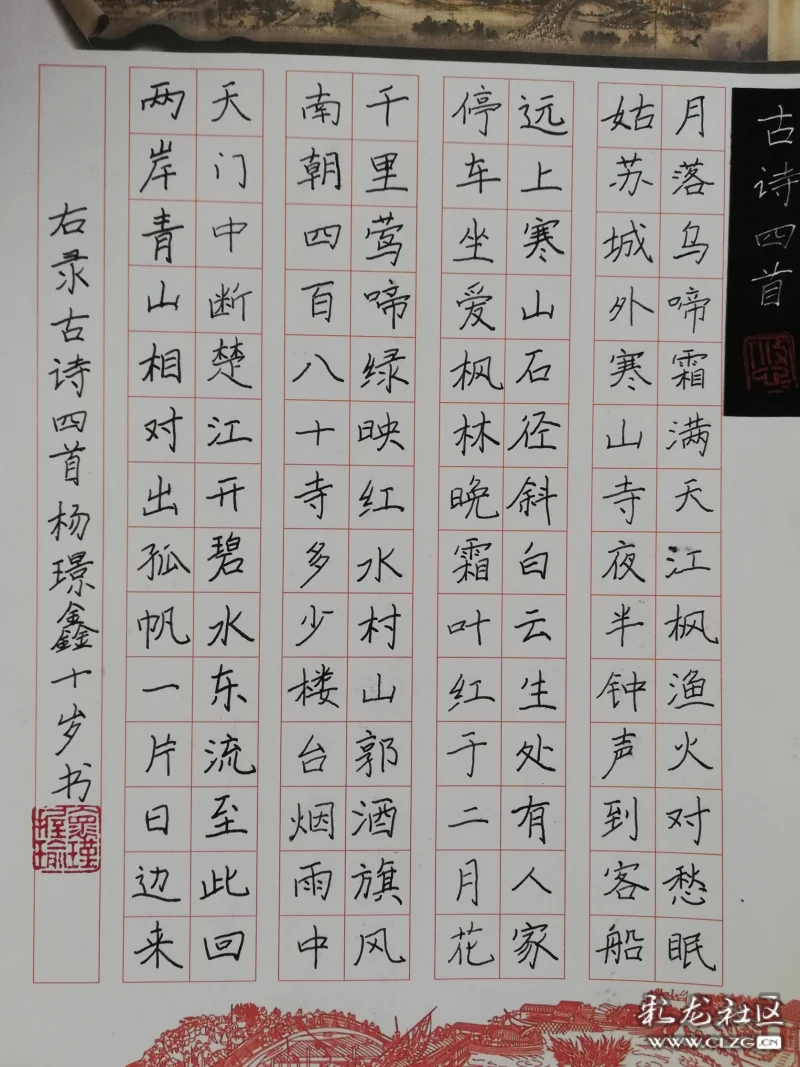 古诗四首
月落乌啼霜满天江枫渔火对愁眠
姑苏城外寒山寺夜半钟声到客船
远上寒山石径斜白云生处有人家
停车坐爱枫林晚霜叶红于二月花
千里莺啼绿映红水村山郭酒旗风
南朝四百八十寺多少楼台烟雨中
天门中断楚江开碧水东流至此回
两岸青山相对出孤帆一片日边来
右录古诗四首杨璟鑫十岁书
怀瑾握瑜
龙社区
WWW.CLZG.CN